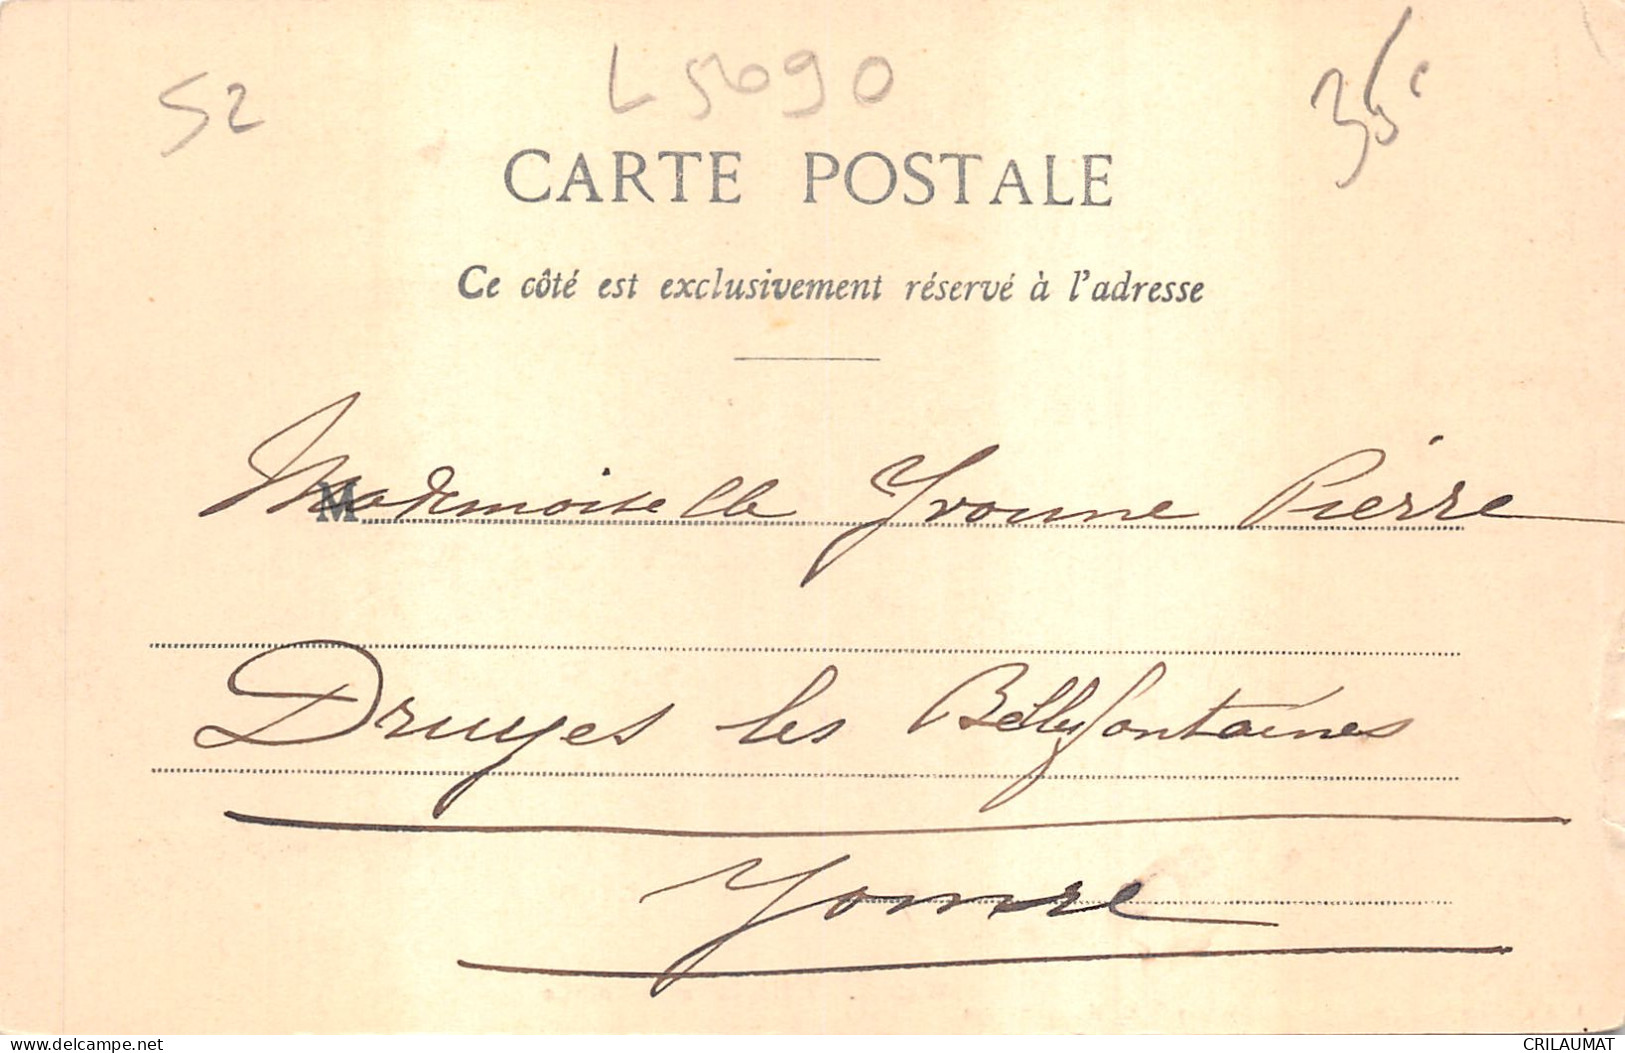 52
L5090
35c
CARTE POSTALE
Ce côté est exclusivement réservé à l'adresse
Mademoiselle Yvonne Pierre
Druyes les Bellesfontaines
Yonne
www.delcampe.net
CRILAUMAT